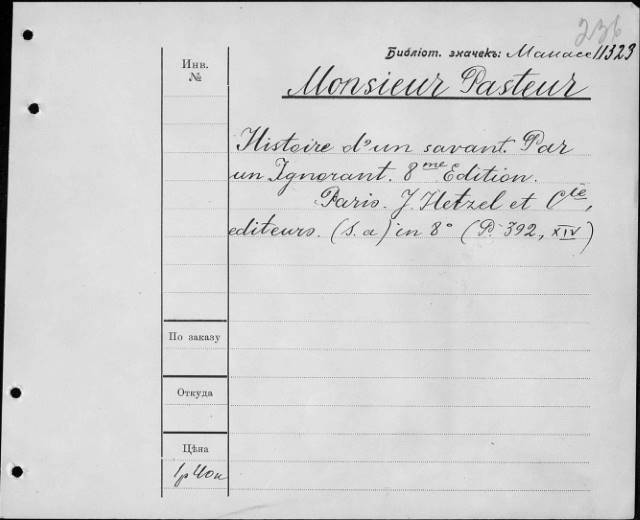 236
Библіот. значекъ: Манасс 11323
Инв.
№
Monsieur Pasteur
Histoire d'un savant. Par
un Ignorant. 8me Edition.
Paris. J. Hetzel et Cie,
editeurs. (S. a) in 8° (P. 392, XIV)
По заказу
Откуда
Цѣна
1 р 40 к